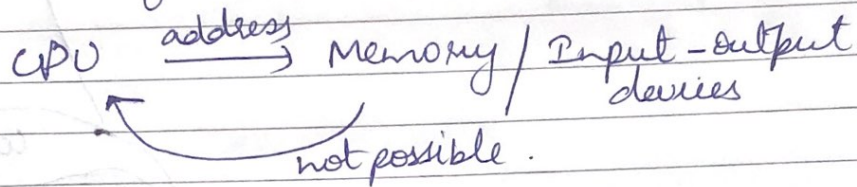 CPU address Memory / Input-output
devices
not possible.